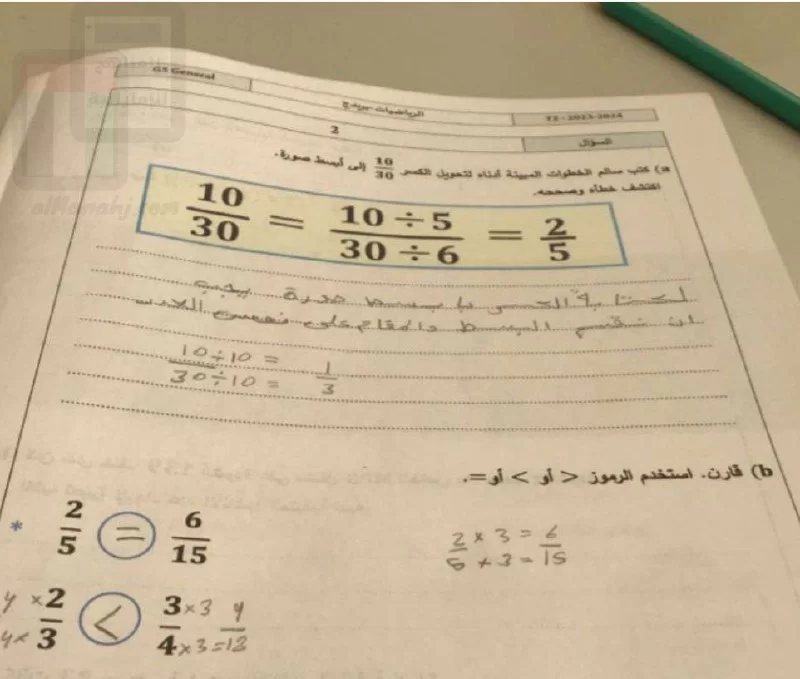 G5 General
الرياضيات-بريدج
T2 - 2023-2024
2
السؤال
a) كتب سالم الخطوات المبينة أدناه لتحويل الكسر 10/30 إلى أبسط صورة.
اكتشف خطأه وصححه.
10/30 = 10 ÷ 5/30 ÷ 6 = 2/5
لكتابة الكسر با بسط صورة يجب
ان نقسم البسط والمقام على نفس العدد
10 ÷ 10 = 1
30 ÷ 10 = 3
b) قارن. استخدم الرموز > أو < أو =.
* 2/5 = 6/15
2 × 3 = 6
5 × 3 = 15
2/3 < 3/4
× 3 9
× 3 = 12
almanahj.com